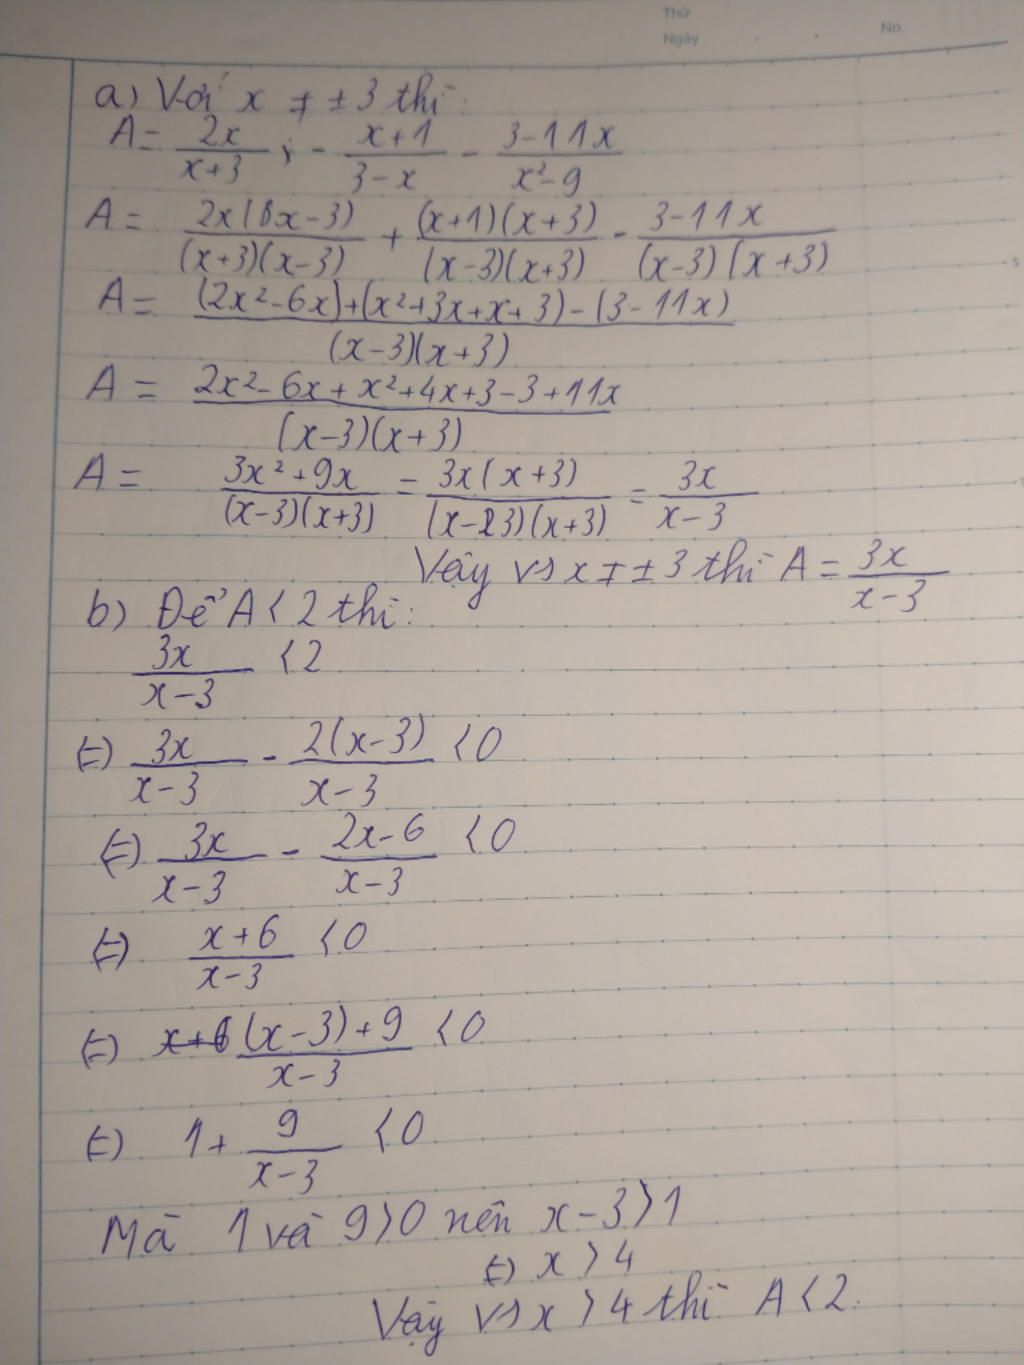 Thứ
Ngày
No.
a) Với x ≠ ±3 thì:
A = 2x/(x+3) - (x+1)/(3-x) - (3-11x)/(x²-9)
A = 2x(x-3)/((x+3)(x-3)) + (x+1)(x+3)/((x-3)(x+3)) - (3-11x)/((x-3)(x+3))
A = ((2x²-6x)+(x²+3x+x+3)-(3-11x))/((x-3)(x+3))
A = (2x²-6x+x²+4x+3-3+11x)/((x-3)(x+3))
A = (3x²+9x)/((x-3)(x+3)) = 3x(x+3)/((x-3)(x+3)) = 3x/(x-3)
Vậy vs x ≠ ±3 thì A = 3x/(x-3)
b) Để A < 2 thì:
3x/(x-3) < 2
(=) 3x/(x-3) - 2(x-3)/(x-3) < 0
(=) 3x/(x-3) - (2x-6)/(x-3) < 0
(=) (x+6)/(x-3) < 0
(=) ((x-3)+9)/(x-3) < 0
(=) 1 + 9/(x-3) < 0
Mà 1 và 9 > 0 nên x-3 > 1
(=) x > 4
Vậy vs x > 4 thì A < 2.